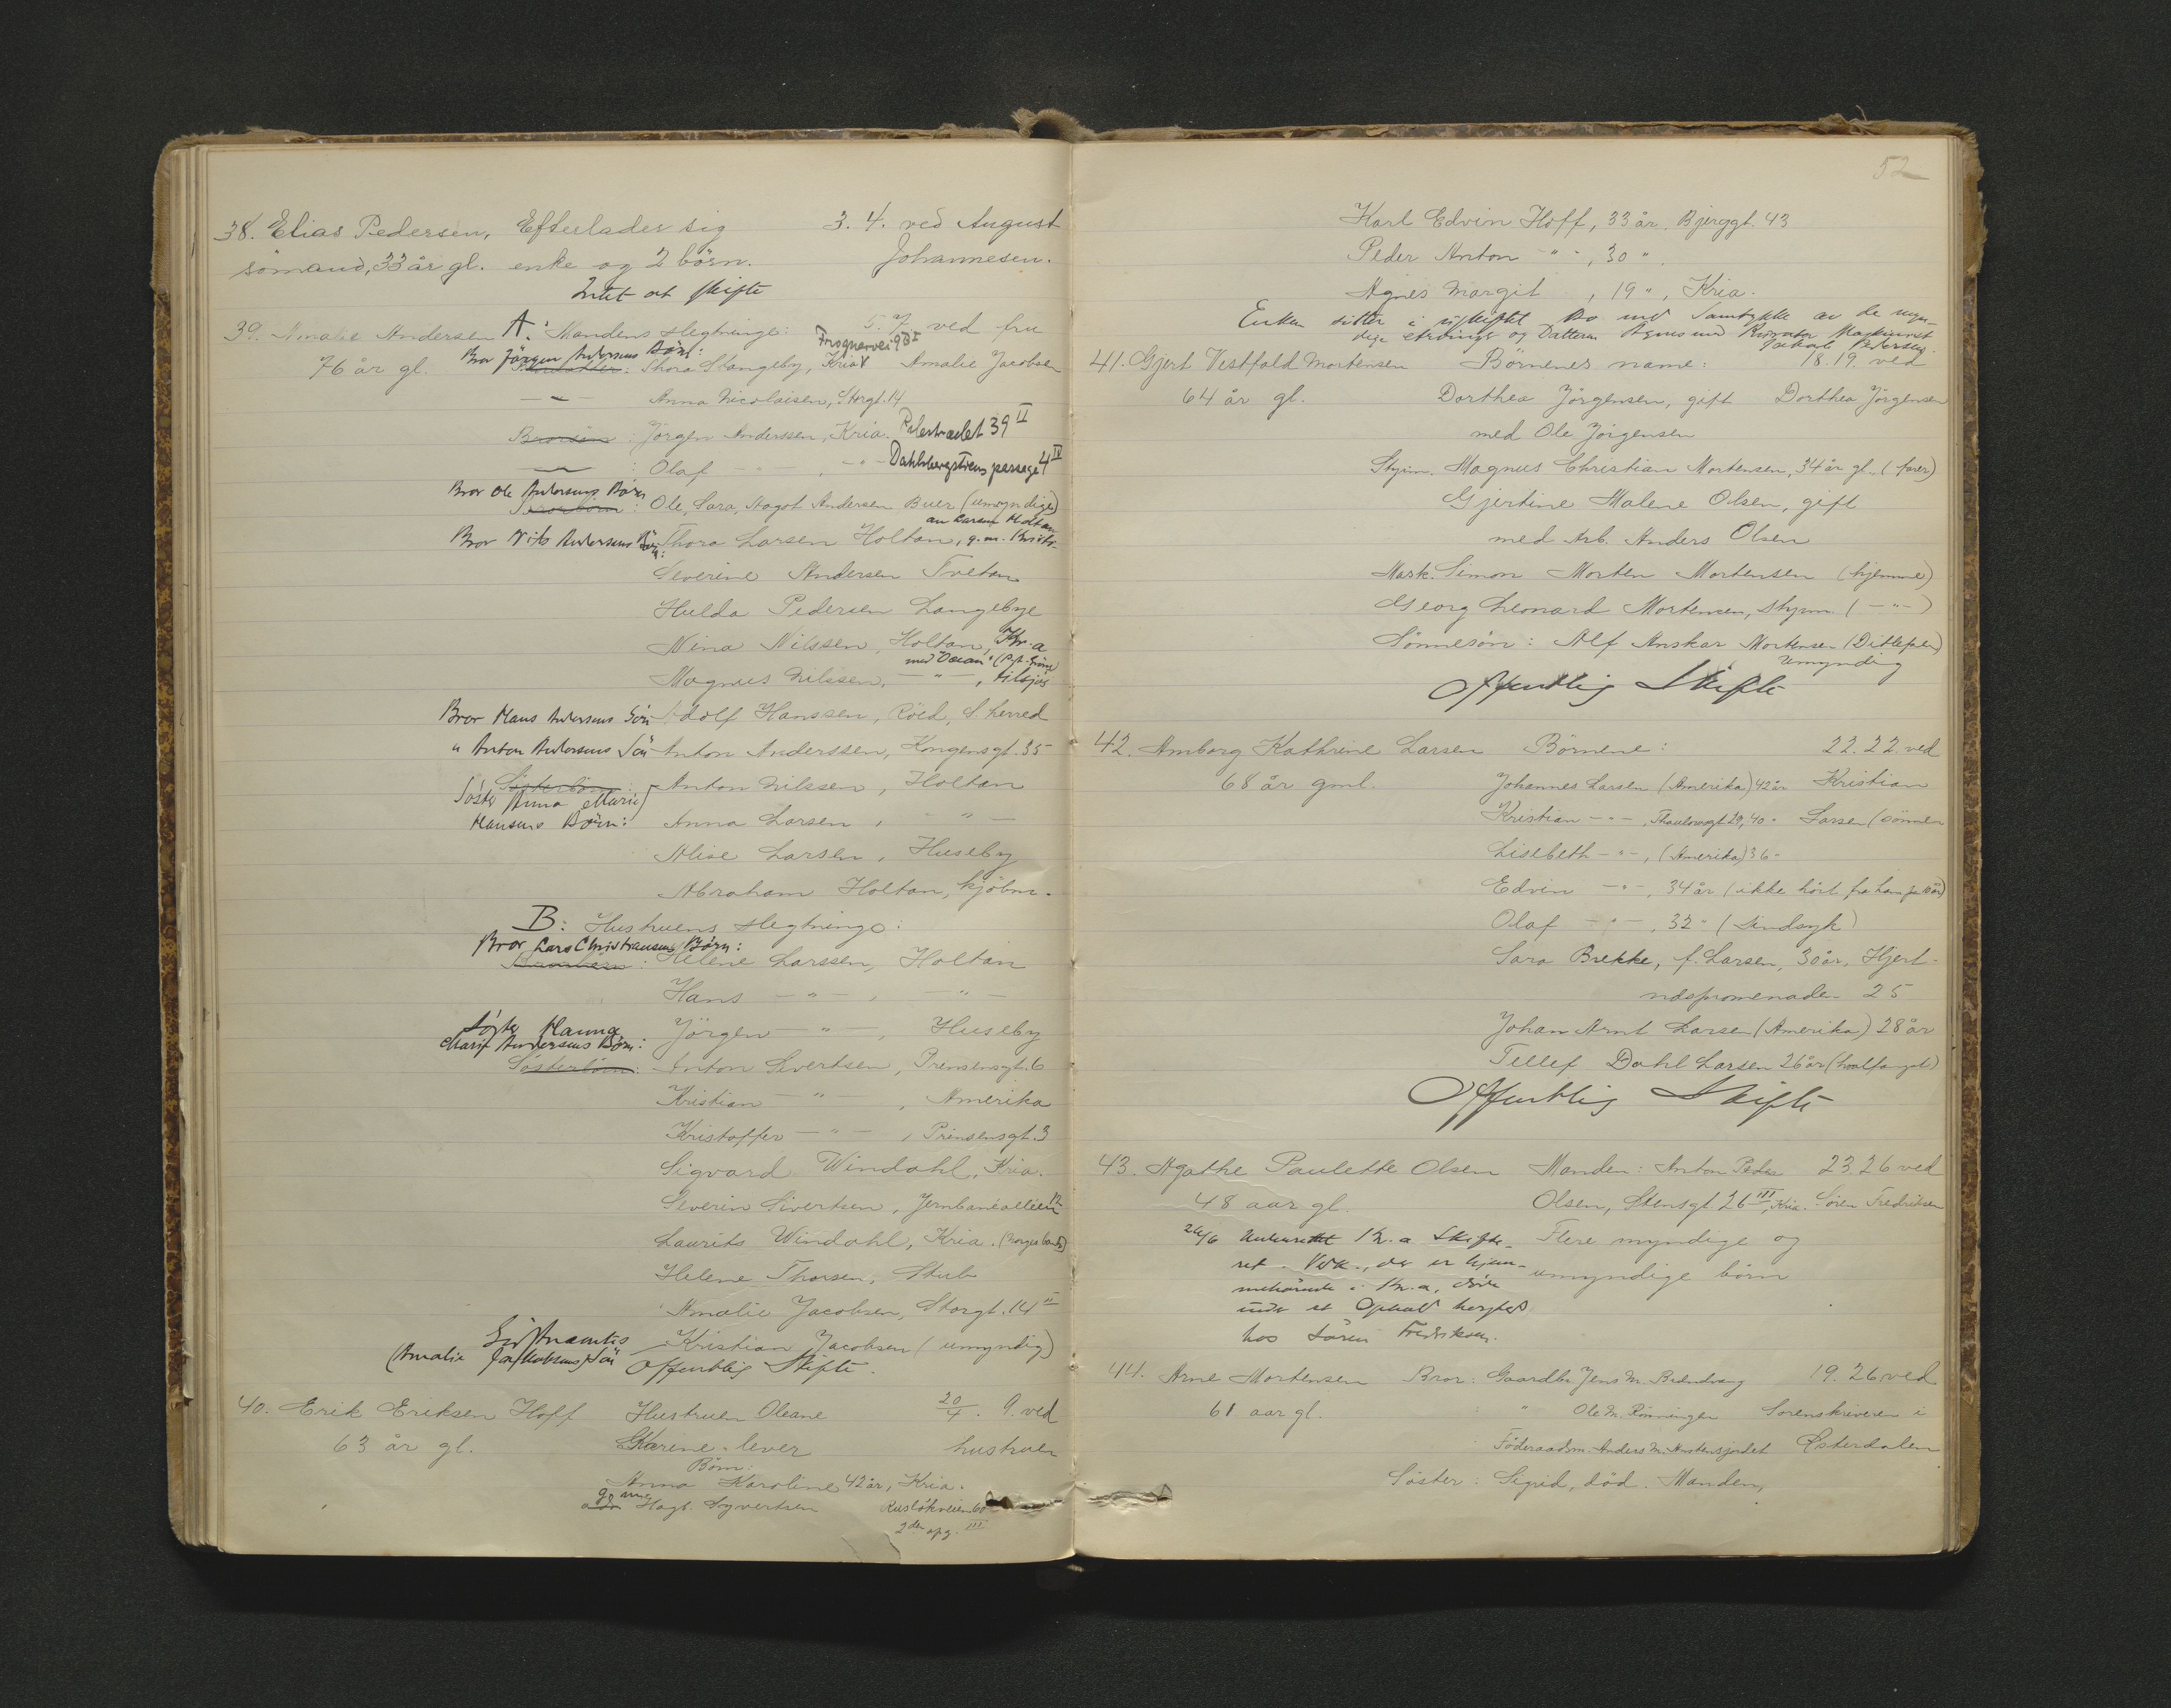 38. Elias Pedersen, Efterlader sig 3. 4. ved August
sömand, 33 år gl. enke og 2 börn. Johannesen.
Intet at skifte
39. Amalie Andersen A: Mandens slegtninge: 5. 7. ved fru
Frognervei 9
Bror Jörgen Andersens Börn:
76 år gl. Thora Stangeby, Kria Amalie Jacobsen
Anna Nicolaisen, Storgt. 14
Brorsön: Jörgen Anderssen, Kria. 39 II
: Olaf - " - , - " - Dahlsbergstiens passage 4 IV
Bror Ole Andersens Börn
Brorbörn: Ole, Sara, Aagot Andersen Buer (umyndige)
Bror Nils Andersens Börn: Thora Larsen Holtan, g. m.
Severine Andersen Tvetan
Hulda Pedersen Langebye
Nina Nilssen, Holtan, Kr.a
Magnus Nilssen, - " - , tilsjøs
Bror Hans Andersens Sön Adolf Hanssen, Röed, S. herred
" Anton Andersens Sön Anton Anderssen, Kongensgt. 35
Sösterbörn: Anton Nilssen, Holtan
Söster Anna Marie
Hansens Börn: Anna Larsen, - " -
Alise Larsen, Huseby
Abraham Holtan, kjöbm.
B: Hustruens slegtninge:
Bror Lars Christiansens Börn:
Brorbörn: Helene Larssen, Holtan
Hans - " - , - " -
Söster Hanna
Marie Andersens Börn: Jörgen - " - , Huseby
Sösterbörn: Anton Sivertsen, Prinsensgt. 6
Kristian - " - , Amerika
Kristoffer - " - , Prinsensgt. 3
Sigvard Windahl, Kria.
Severin Sivertsen, Jernbanealleen 12
Laurits Windahl, Kria. (Norges bank)
Helene Thorsen, Stub
Amalie Jacobsen, Storgt. 14 II
Kristian Jacobsen (umyndig)
(Amalie Jakobsens Sön Offentlig Skifte.
40. Erik Eriksen Hoff Hustruen Oleane 20/4. 9. ved
63 år gl. Karine lever hustruen
Börn:
Anna Karoline 42 år, Kria.
g. m. Hagb. Syvertsen Ruslökveien 60
2den opg. III
52
Karl Edvin Hoff, 33 år, Bjerggt. 43
Peder Anton - " - , 30 " .
Agnes Margit , 19 " , Kria.
Enken sitter i uskiftet Bo med Samtykke av de myn-
dige arvinger og Datteren Agnes med Kurator Maskinist
Jakob Pedersen.
41. Gjert Vestfald Mortensen Börnenes navne: 18. 19. ved
64 år gl. Dorthea Jörgensen, gift Dorthea Jörgensen
med Ole Jörgensen
Styrm. Magnus Christian Mortensen, 34 år gl. (farer)
Gjertine Malene Olsen, gift
med Arb. Anders Olsen
Mask. Simon Morten Mortensen (hjemme)
Georg Leonard Mortensen, styrm. ( - " - )
Sönnesön: Alf Anskar Mortensen (Ditlefsen)
umyndig
Offentlig Skifte
42. Amborg Kathrine Larsen Börnene: 22. 22. ved
68 år gml. Johannes Larsen (Amerika) 42 år Kristian
Kristian - " - , Thaulowsgt. 29, 40 " Larsen (sönnen
Lisebeth - " - , (Amerika) 36 "
Edvin - " - , 34 år (ikke hört fra ham på 10 år)
Olaf - " - , 32 " (sindsyk)
Sara Brekke, f. Larsen, 30 år, Hjert-
nespromenaden 25
Johan Arnt Larsen (Amerika) 28 år
Tellef Dahl Larsen 26 år (hvalfangst)
Offentlig Skifte
43. Agathe Paulette Olsen Manden: Anton Peder 23. 26 ved
48 aar gl. Olsen, Stensgt. 26 III, Kria. Sören Fredriksen
26/6 Kr.a Skifte- Flere myndige og
ret. Vedk., der er hjem- umyndige börn
mehörende i Kr.a, döde
under et Ophold hersteds
hos Sören Fredriksen.
44. Arne Mortensen Bror: Gaardbr. Jens M. 19. 26 ved
61 aar gl. " Ole M. Rönningen Sorenskriveren i
Föderaadsm. Anders M. Österdalen
Söster: Sigrid, död. Manden,